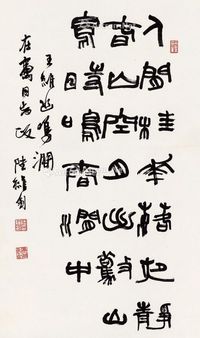 人閒桂華落夜靜
春山空月出驚山
鳥時鳴春澗中
王維鳥鳴澗
同志政
陸維釗